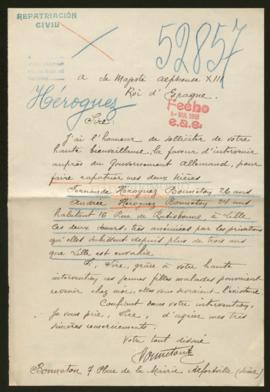 REPATRIACIÓN
CIVIL
52857
A Sa Majesté Alphonse XIII
Roi d'Espagne
Fecho
1918
e.a.e.
Héroguez
Sire
J'ai l'honneur de solliciter de votre
haute bienveillance, la faveur d'intervenir
auprès du Gouvernement Allemand, pour
faire rapatrier mes deux nièces
Fernande Héroguez Bonnaton, 26 ans
Andrée Héroguez Bonnaton, 24 ans
habitant 16 Rue de à Lille
Ces deux sœurs, très anémiées par les privations
qu'elles subissent depuis plus de trois ans
que Lille est envahie.
Si, Sire, grâce à votre haute
intervention, ces jeunes filles malades pouvaient
revenir chez moi, elles vous devraient l'existence
Confiant dans votre intervention,
Je vous prie, Sire, d'agréer mes très
sincères remerciements.
Votre tout dévoué
Bonnaton
Bonnaton 7 Place de la Mairie Alfortville (Seine)